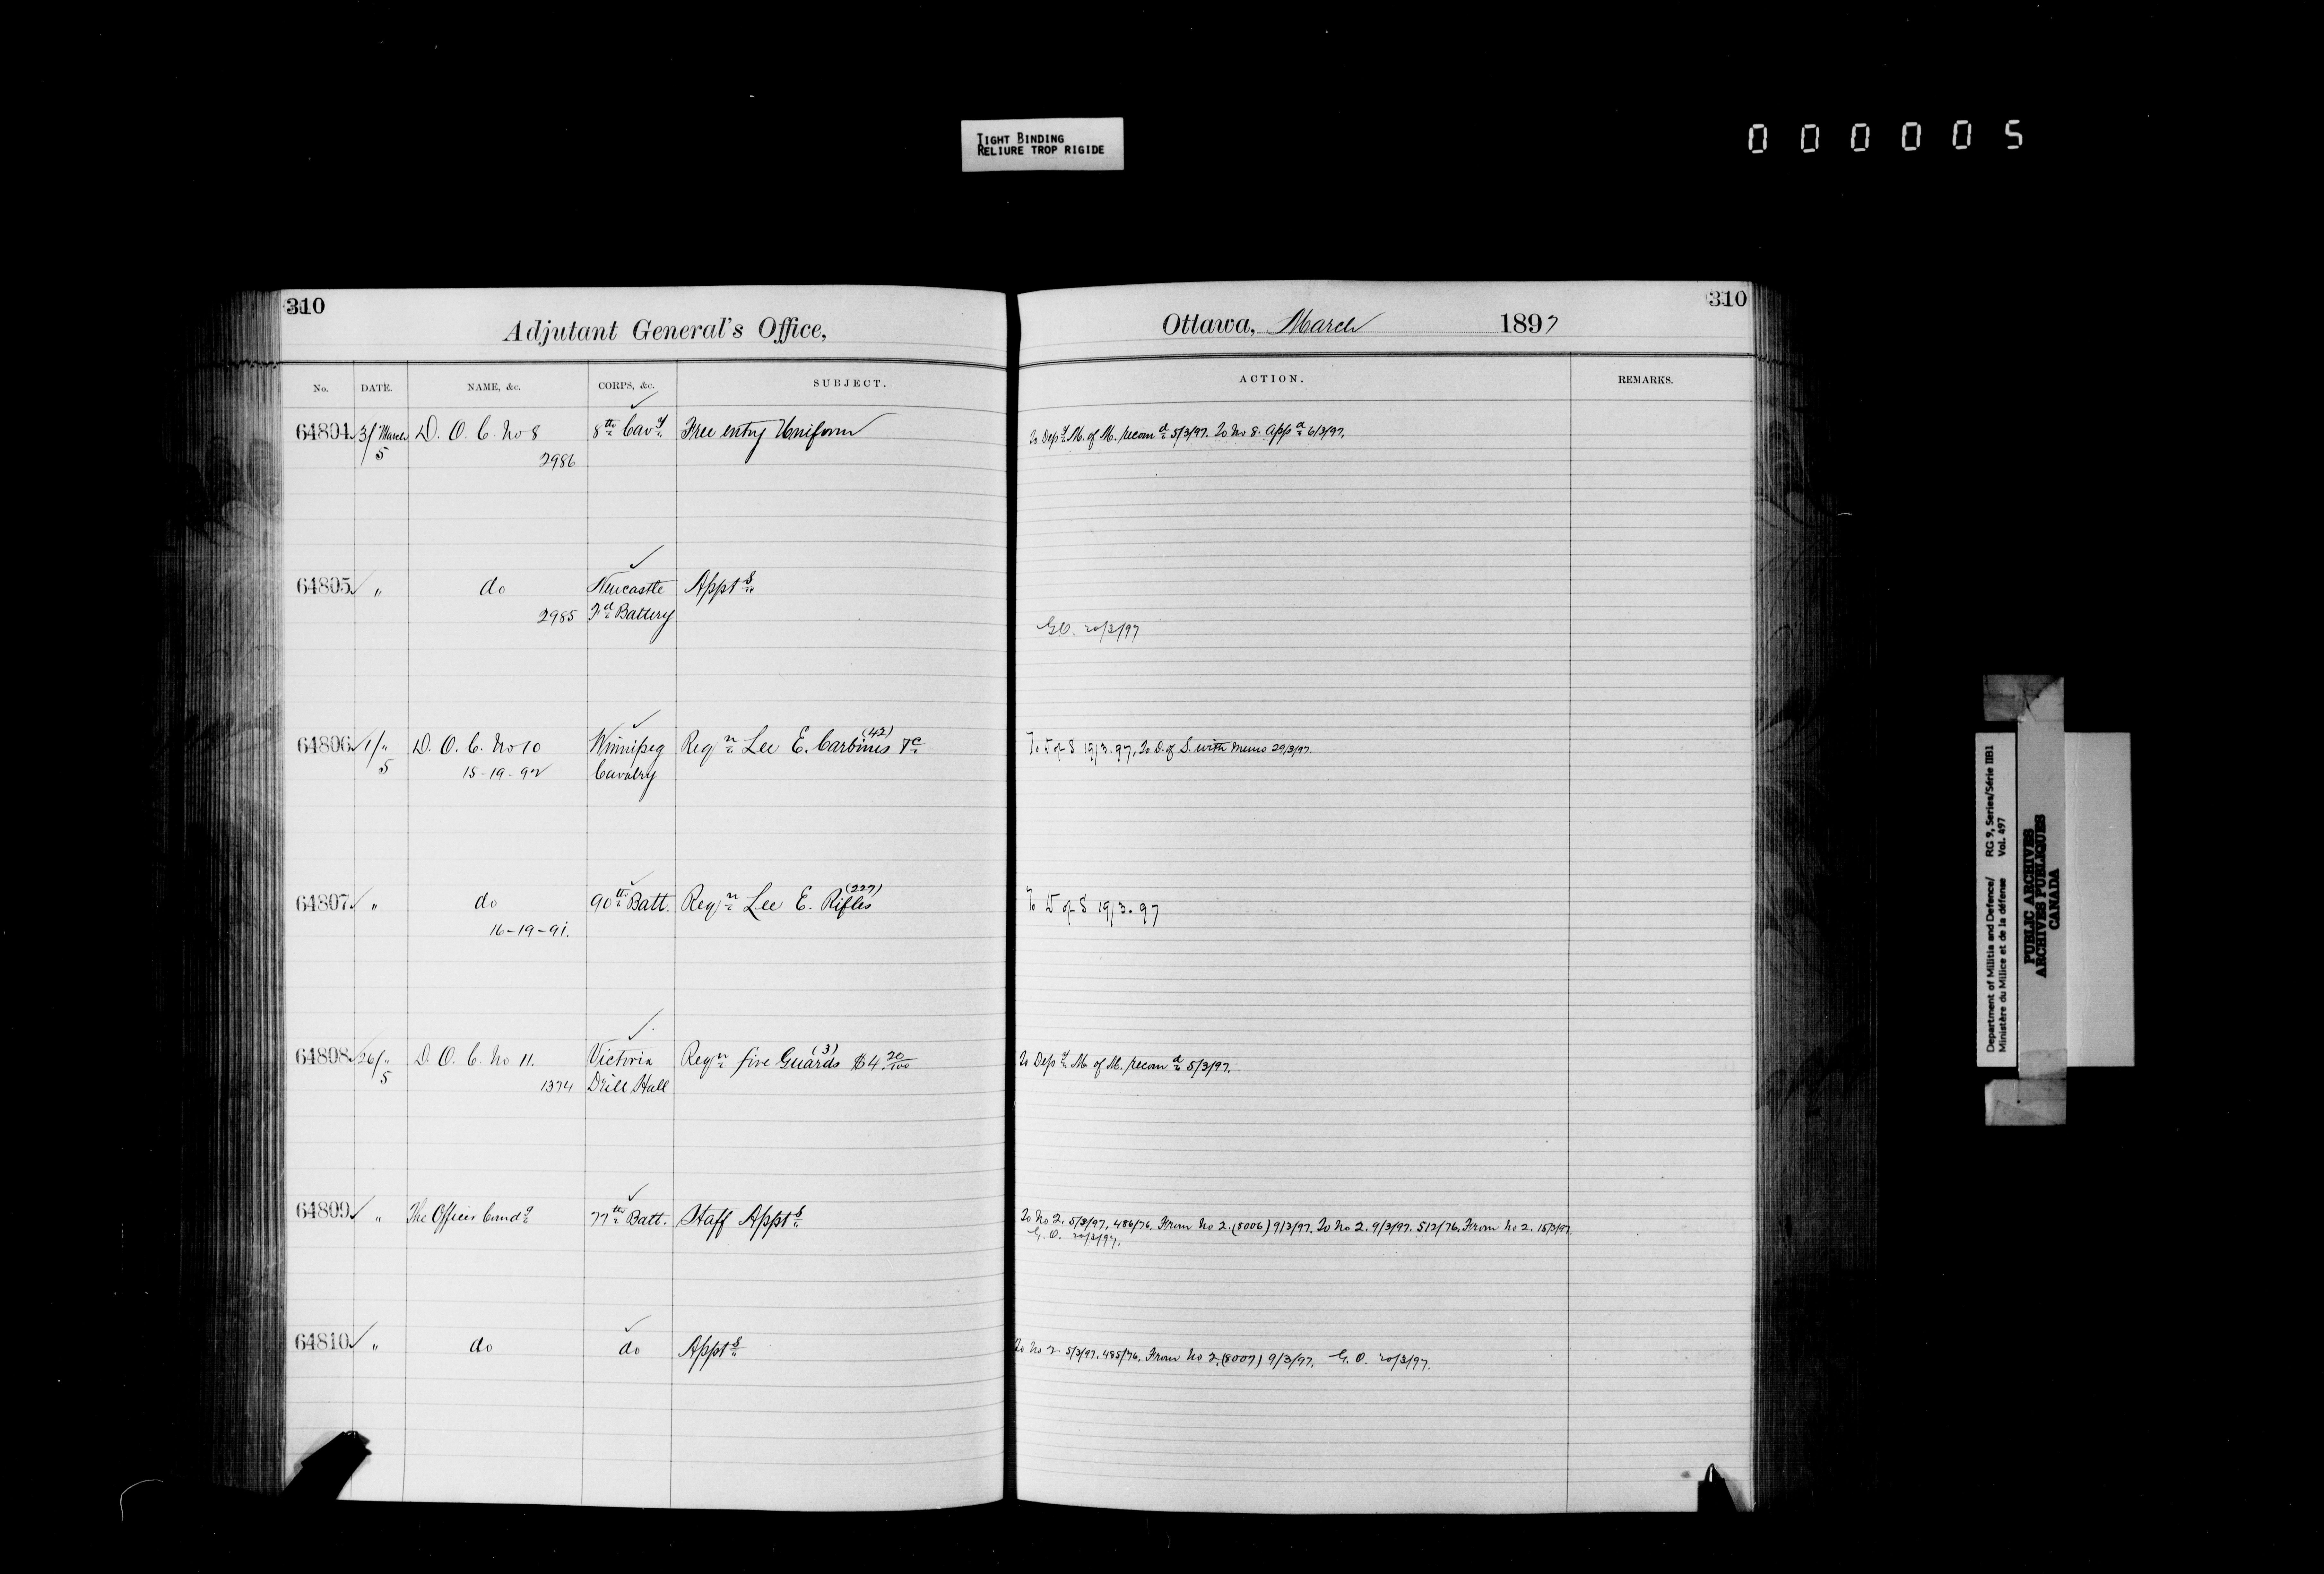 TIGHT BINDING
RELIURE TROP RIGIDE
000005
310
Adjutant General's Office,
No. DATE. NAME, &c. CORPS, &c. SUBJECT.
64804 3/March D. O. C. No 8 8th Cavy Free entry Uniform
5 2986
64805 " do Newcastle Appts
2985 Fd Battery
(42)
64806 1/" D. O. C. No 10 Winnipeg Reqn Lee E. Carbines &c
5 15-19-92 Cavalry
(227)
64807 " do 90th Batt. Reqn Lee E. Rifles
16-19-91.
(3)
64808 26/" D. O. C. No 11. Victoria Reqn fire Guards $4 20/100
5 1374 Drill Hall
64809 " The Officer Comdg 77th Batt. Staff Appts
64810 " do do Appts
310
Ottawa, March 1897
ACTION. REMARKS.
To Depy M. of M. recomd 5/3/97. To No 8. Appd 6/3/97.
G.O. 20/3/97
To D of S 19/3.97, To D. of S. with Memo 29/3/97.
To D of S 19/3.97
To Depy M. of M. recomd 5/3/97.
To No 2. 5/3/97, 486/76. From No 2. (8006) 9/3/97. To No 2. 9/3/97. 512/76. From No 2. 15/3/97
G. O. 20/3/97.
To No 2 5/3/97. 485/76. From No 2. (8007) 9/3/97. G. O. 20/3/97.
Department of Militia and Defence/ RG 9, Series/Série IIB1
Ministère du Milice et de la défense Vol. 497
PUBLIC ARCHIVES
ARCHIVES PUBLIQUES
CANADA